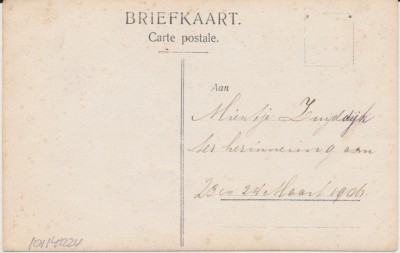 BRIEFKAART.
Carte postale.
Aan
Mientje Zuyddijk
ter herinnering aan
23 en 24 Maart 1906